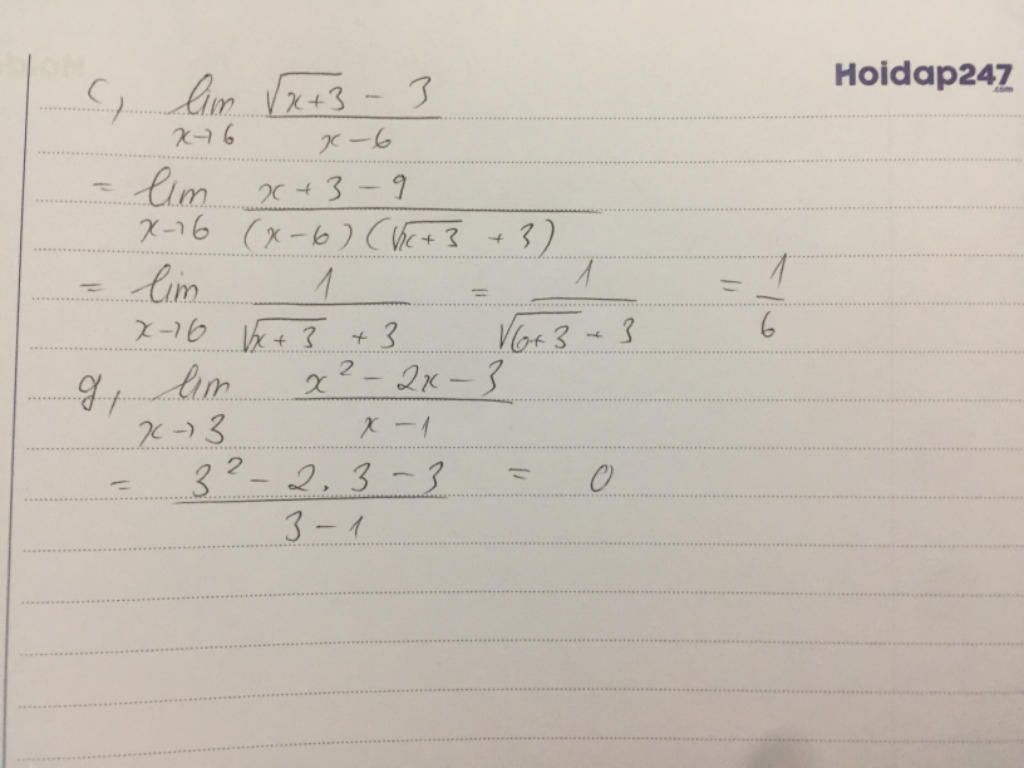 Hoidap247
.com
c, lim x→6 (√(x+3) - 3)/(x-6)
= lim x→6 (x+3-9)/((x-6)(√(x+3) +3))
= lim x→6 1/(√(x+3) +3) = 1/(√(6+3) + 3) = 1/6
g, lim x→3 (x² - 2x - 3)/(x-1)
= (3² - 2.3 - 3)/(3-1) = 0